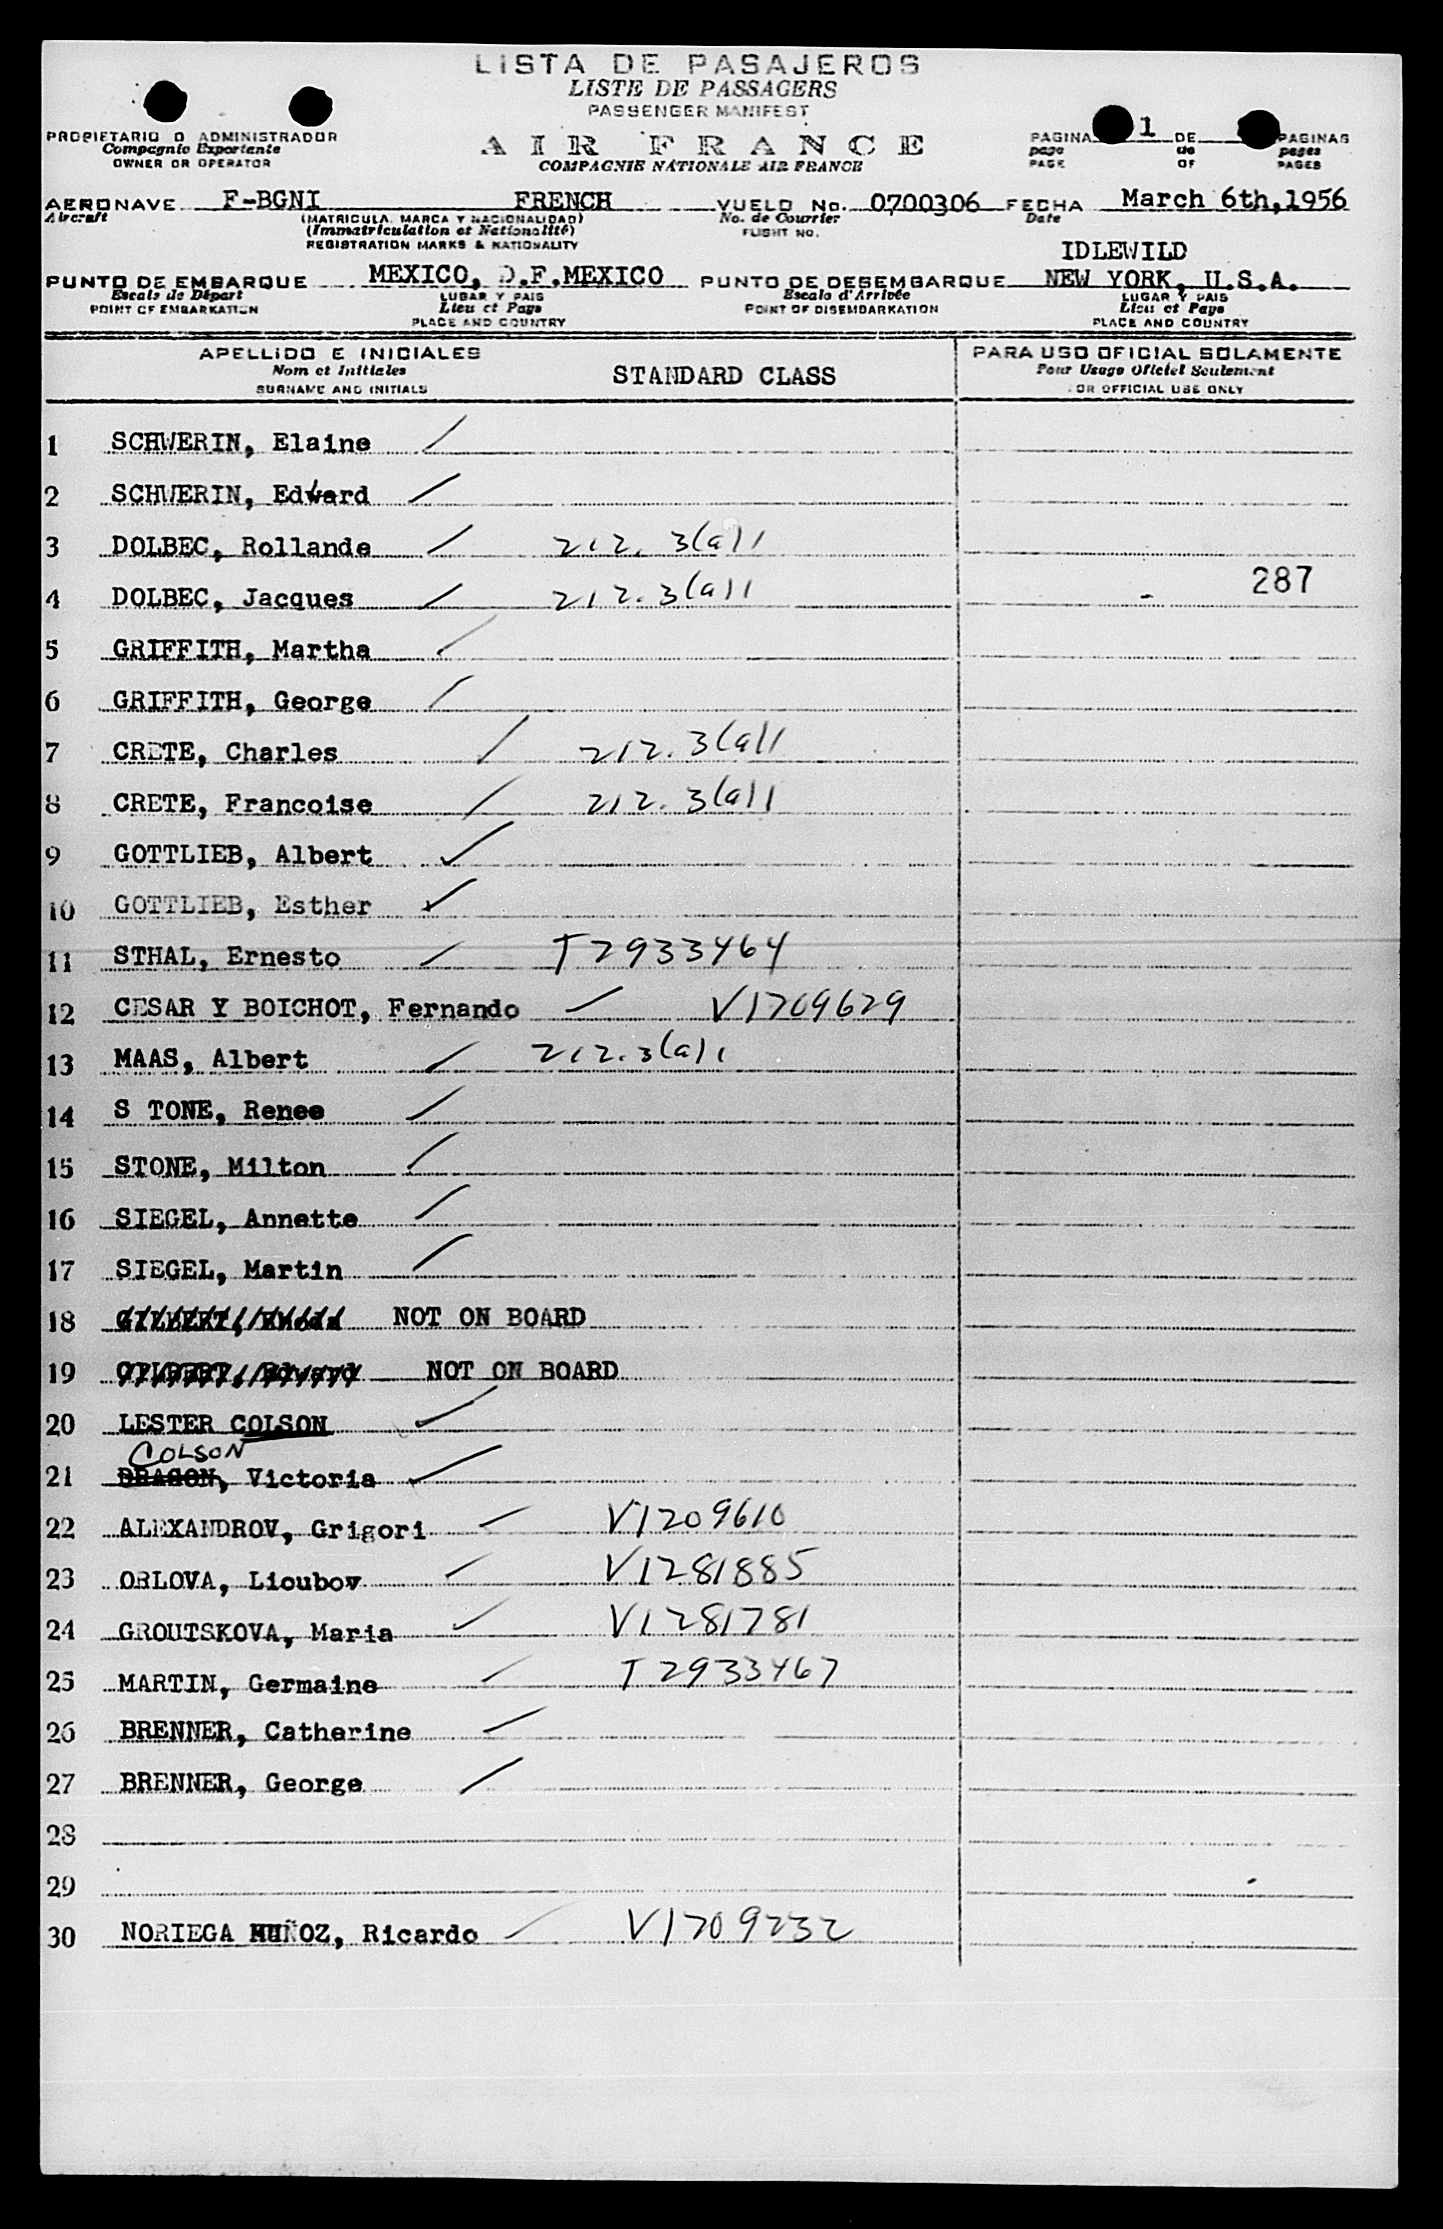 LISTA DE PASAJEROS
LISTE DE PASSAGERS
PASSENGER MANIFEST
PROPIETARIO O ADMINISTRADOR
Compagnie Exportente
OWNER OR OPERATOR
AIR FRANCE
COMPAGNIE NATIONALE AIR FRANCE
PAGINA 1 DE PAGINAS
page de pages
PAGE OF PAGES
AERONAVE F-BGNI FRENCH VUELO No. 0700306 FECHA March 6th,1956
Aircraft (MATRICULA, MARCA Y NACIONALIDAD) No. de Courrier Date
(Immatriculation et Nationalité) FLIGHT NO.
REGISTRATION MARKS & NATIONALITY
IDLEWILD
PUNTO DE EMBARQUE MEXICO, D.F.MEXICO PUNTO DE DESEMBARQUE NEW YORK, U.S.A.
Escale de Départ LUGAR Y PAIS Escale d'Arrivée LUGAR Y PAIS
POINT OF EMBARKATION Lieu et Pays POINT OF DISEMBARKATION Lieu et Pays
PLACE AND COUNTRY PLACE AND COUNTRY
APELLIDO E INICIALES STANDARD CLASS PARA USO OFICIAL SOLAMENTE
Nom et Initiales Pour Usage Officiel Seulement
SURNAME AND INITIALS FOR OFFICIAL USE ONLY
1 SCHWERIN, Elaine
2 SCHWERIN, Edward
3 DOLBEC, Rollande 212.3(a)1
4 DOLBEC, Jacques 212.3(a)1 287
5 GRIFFITH, Martha
6 GRIFFITH, George
7 CRETE, Charles 212.3(a)1
8 CRETE, Francoise 212.3(a)1
9 GOTTLIEB, Albert
10 GOTTLIEB, Esther
11 STHAL, Ernesto T2933464
12 CESAR Y BOICHOT, Fernando V1709629
13 MAAS, Albert 212.3(a)1
14 S TONE, Renee
15 STONE, Milton
16 SIEGEL, Annette
17 SIEGEL, Martin
18 GILBERT, NOT ON BOARD
19 GILBERT, Edward NOT ON BOARD
20 LESTER COLSON
COLSON
21 DRAGON, Victoria
22 ALEXANDROV, Grigori V1209610
23 ORLOVA, Lioubov V1281885
24 GROUTSKOVA, Maria V1281781
25 MARTIN, Germaine T2933467
26 BRENNER, Catherine
27 BRENNER, George
28
29
30 NORIEGA MUÑOZ, Ricardo V1709232